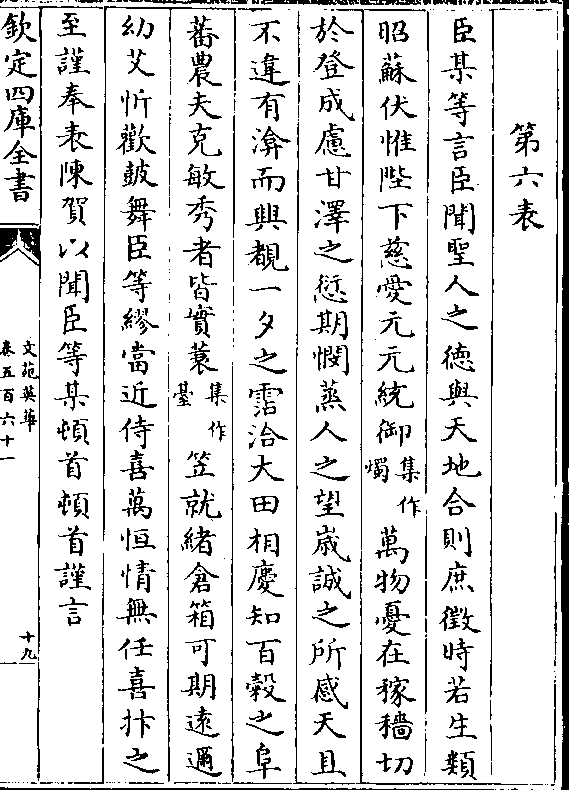 第六表
臣某等言臣聞聖人之德與天地合則庶徵時若生類
昭蘇伏惟陛下慈愛元元統御集作燭萬物憂在稼穡切
於登成慮甘澤之愆期憫蒸人之望歳誠之所感天且
不違有渰而興覩一夕之霑洽大田相慶知百穀之阜
蕃農夫克敏秀者皆實蓑集作臺笠就緒倉箱可期遠邇
幼艾忻歡鼓舞臣等繆當近侍喜萬恒情無任喜抃之
至謹奉表陳賀以聞臣等某頓首頓首謹言
欽定四庫全書
文苑英華
卷五百六十一
十九